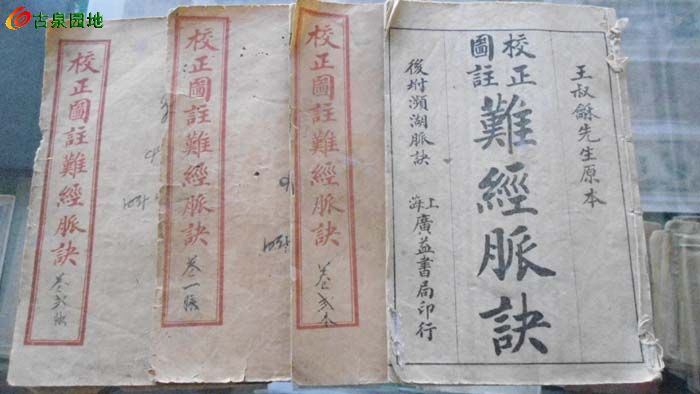 古泉园地
校正圖註難經脈訣
校正圖註難經脈訣
卷一
校正圖註難經脈訣
王叔龢先生原本
校正圖註
難經脈訣
後坿瀕湖脈訣
上海廣益書局印行